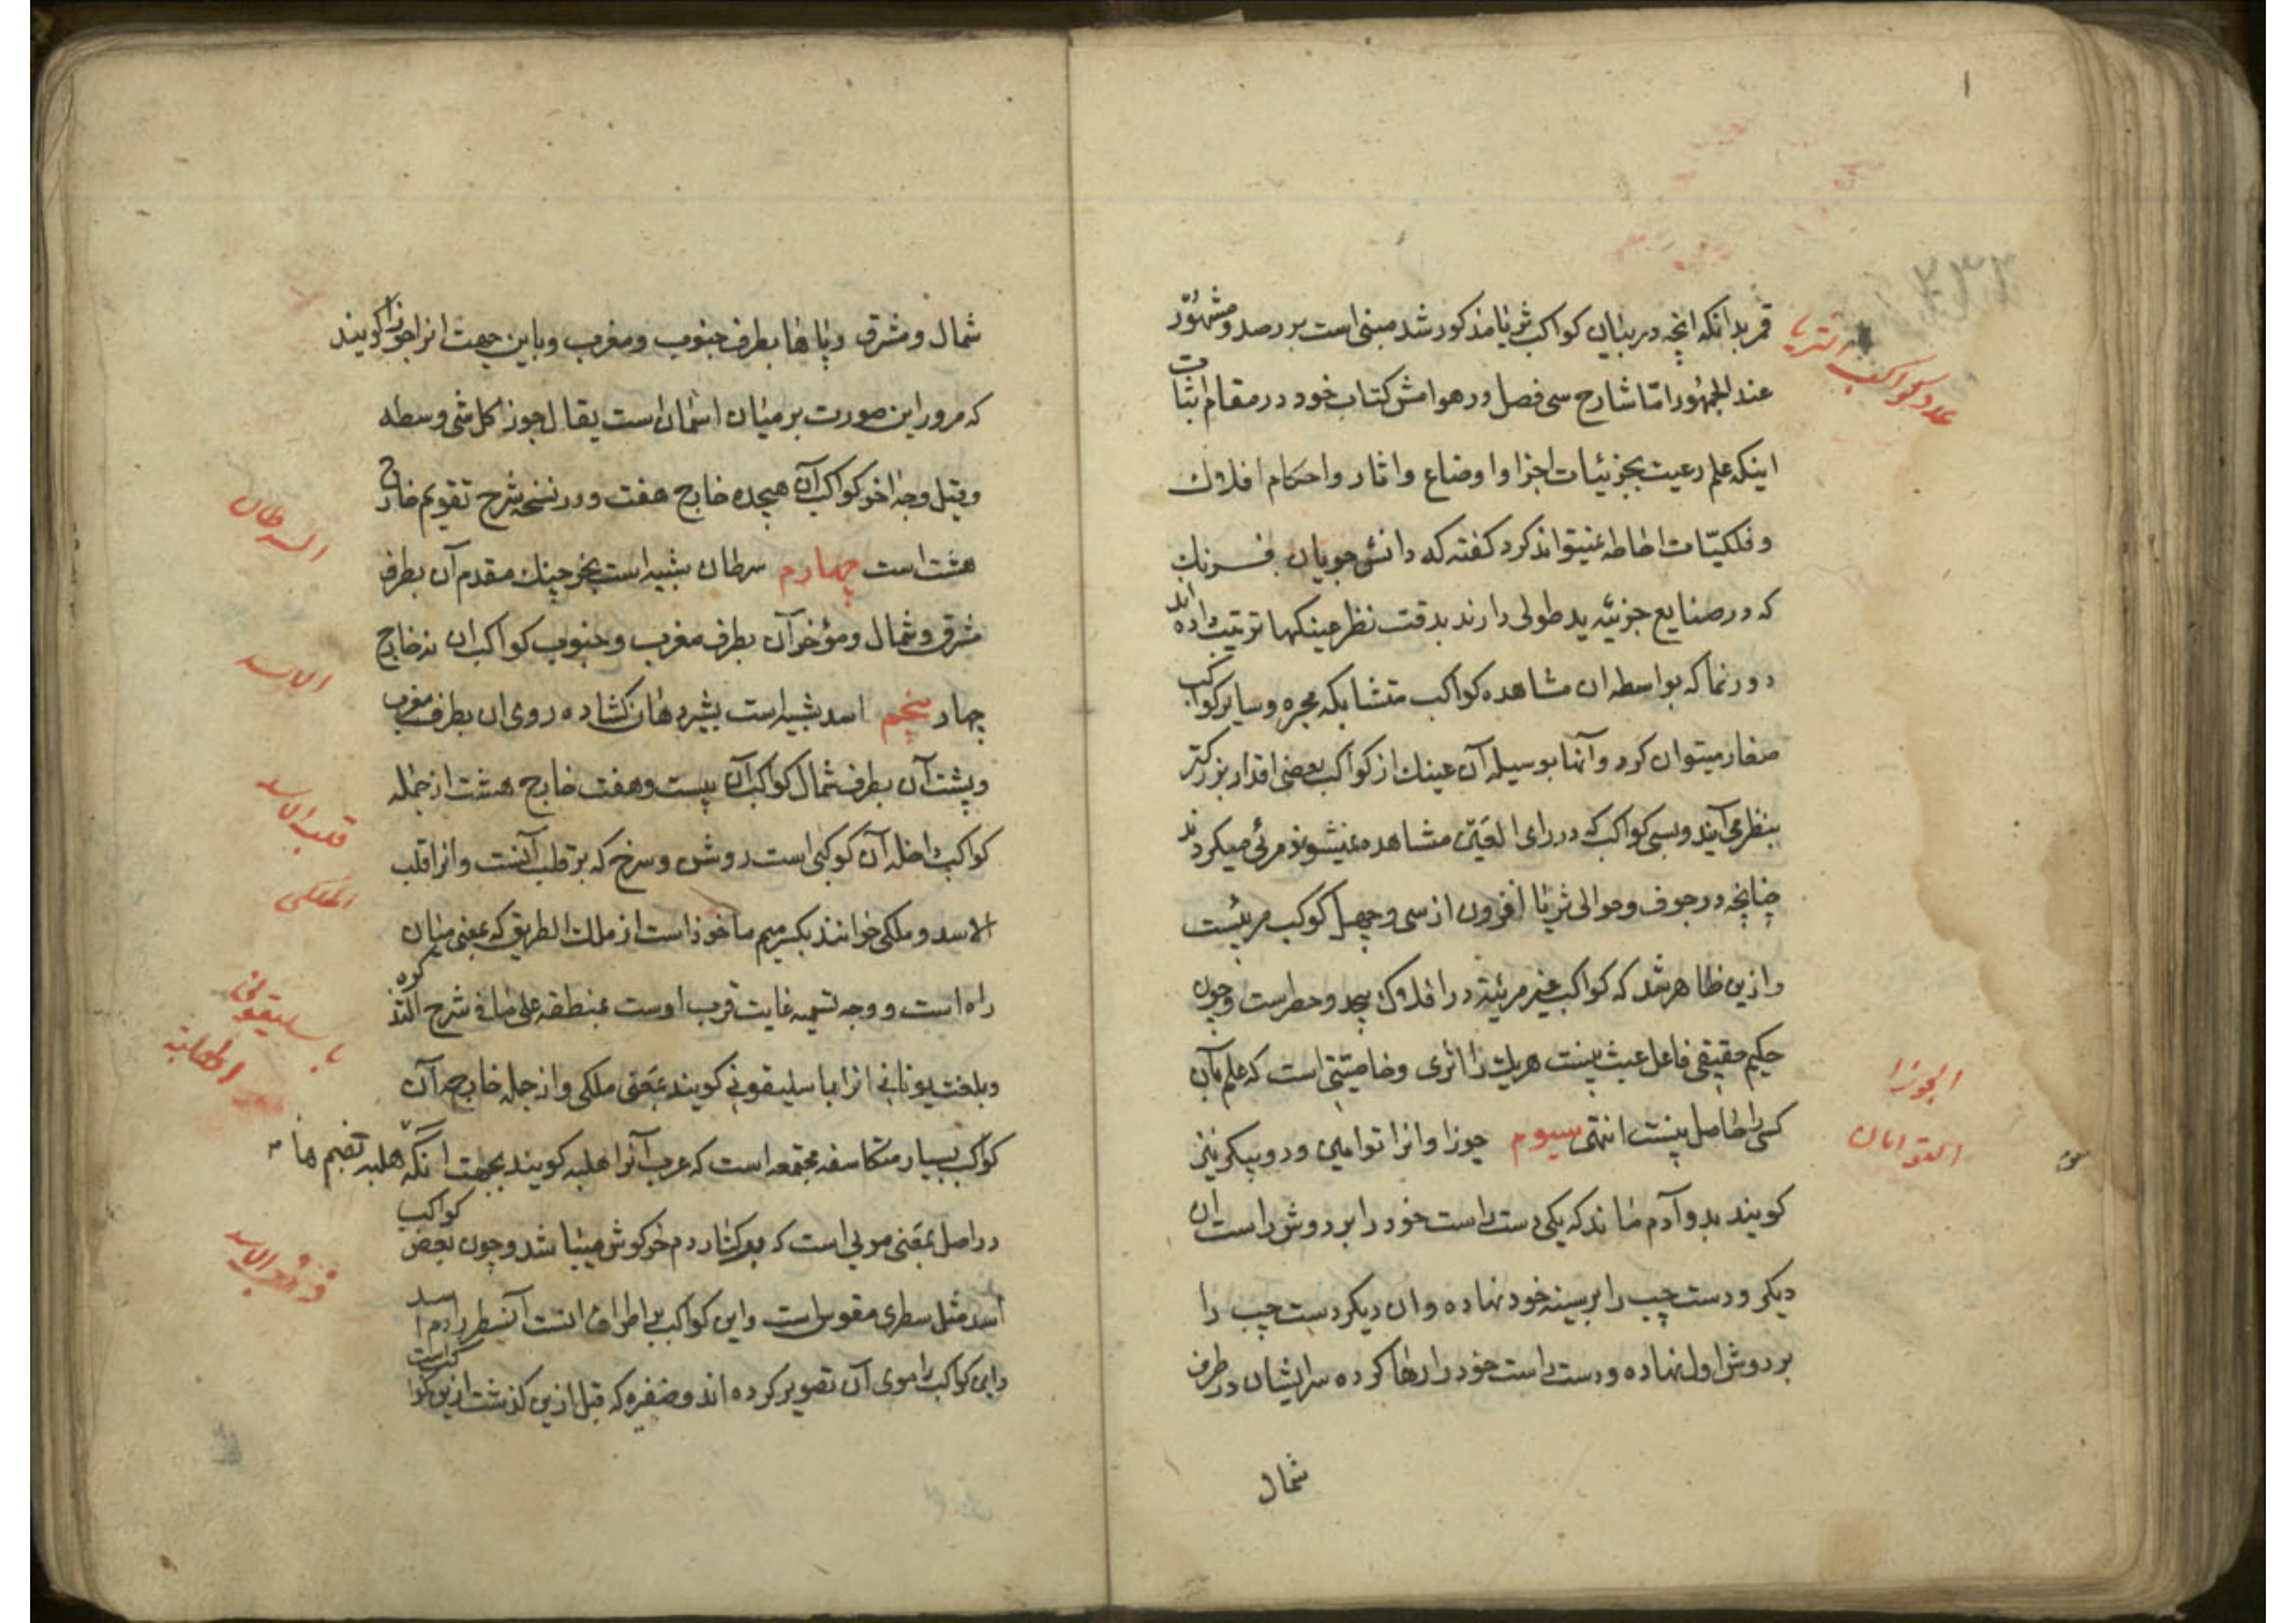 ۱
۲۳۳
عدد کواکب الثریا
قمر بدانکه انچه در بیان کواکب ثریا مذکور شد مبنی است بر رصد و مشهور
عند الجمهور اما شارح سی فصل در هوامش کتاب خود در مقام اثبات
اینکه علم رعیت بجزئیات اجزا و اوضاع و اثار و احکام افلاک
و فلکیّات احاطه نمیتواند کرد کفته که دانش جویان فرنک
که در صنایع جزئیه ید طولی دارند بدقت نظر عینکها ترتیب داده اند
دورنما که بواسطه ان مشاهده کواکب متشابکه مجره و سایر کواکب
صغار میتوان کرد و آنها بوسیله آن عینک از کواکب بعضی اقدار بزرکتر
بنظر می آیند و بسی کواکب که در رای العین مشاهده نمیشوند مرئی میکردند
چنانچه در جوف و حوالی ثریا افزون از سی و چهل کوکب مرئیست
و ازین ظاهر شد که کواکب غیر مرئیه در افلاک بیحد و حصرست و چون
حکیم حقیقی فاعل عبث نیست هر یک را اثری و خاصیتی است که علم بآن
کسی را حاصل نیست انتهی سیوم جوزا و انرا توامین و دو پیکر نیز
کویند بدو آدم ماند که یکی دست راست خود را بر دوش راست ان
دیکر و دست چپ را بر سینه خود نهاده و ان دیکر دست چپ را
بر دوش اول نهاده و دست راست خود را رها کرده سر ایشان در طرف
شمال
الجوزا
التوامان
شمال و مشرق و پاها بطرف جنوب و مغرب و باین جهت انرا جوزا کویند
که مرور این صورت بر میان اسمان است یقال جوز کل شی وسطه
و قیل وجه اخر کواکب آن هیجده خارج هفت و در نسخه شرح تقویم خارج
هشت است چهارم سرطان شبیه است بخرچنک مقدم آن بطرف
مشرق و شمال و مؤخر آن بطرف مغرب و جنوب کواکب ان نه خارج
چهار پنجم اسد شبیه است بشیر دهان کشاده روی ان بطرف مغرب
و پشت آن بطرف شمال کواکب آن بیست و هفت خارج هشت از جمله
کواکب داخله آن کوکبی است روشن و سرخ که بر قلب آنست و انرا قلب
الاسد و ملکی خوانند بکسر میم ماخوذ است از ملک الطریق که بمعنی میان
راه است و وجه تسمیه غایت قرب اوست بمنطقه علی ما فی شرح التذکره
و بلغت یونانی انرا باسلیقونی کویند بمعنی ملکی و از جمله خارجه آن
کواکب بسیار متکاسفه مجتمعه است که عرب آنرا هلبه کویند بجهت انکه هلبه بضم ها
در اصل بمعنی مویی است که بر کنار دم خرکوش میباشد و چون بعض کواکب
اسد مثل سطری مقوس است و این کواکب بر اطراف انست آن سطر را دم اسد
و این کواکب را موی آن تصویر کرده اند و ضفیره که قبل ازین کذشت ازین کواکب است
السرطان
الاسد
قلب الاسد
الملکی
باسلیقونی
الهلبة
ذنب الاسد